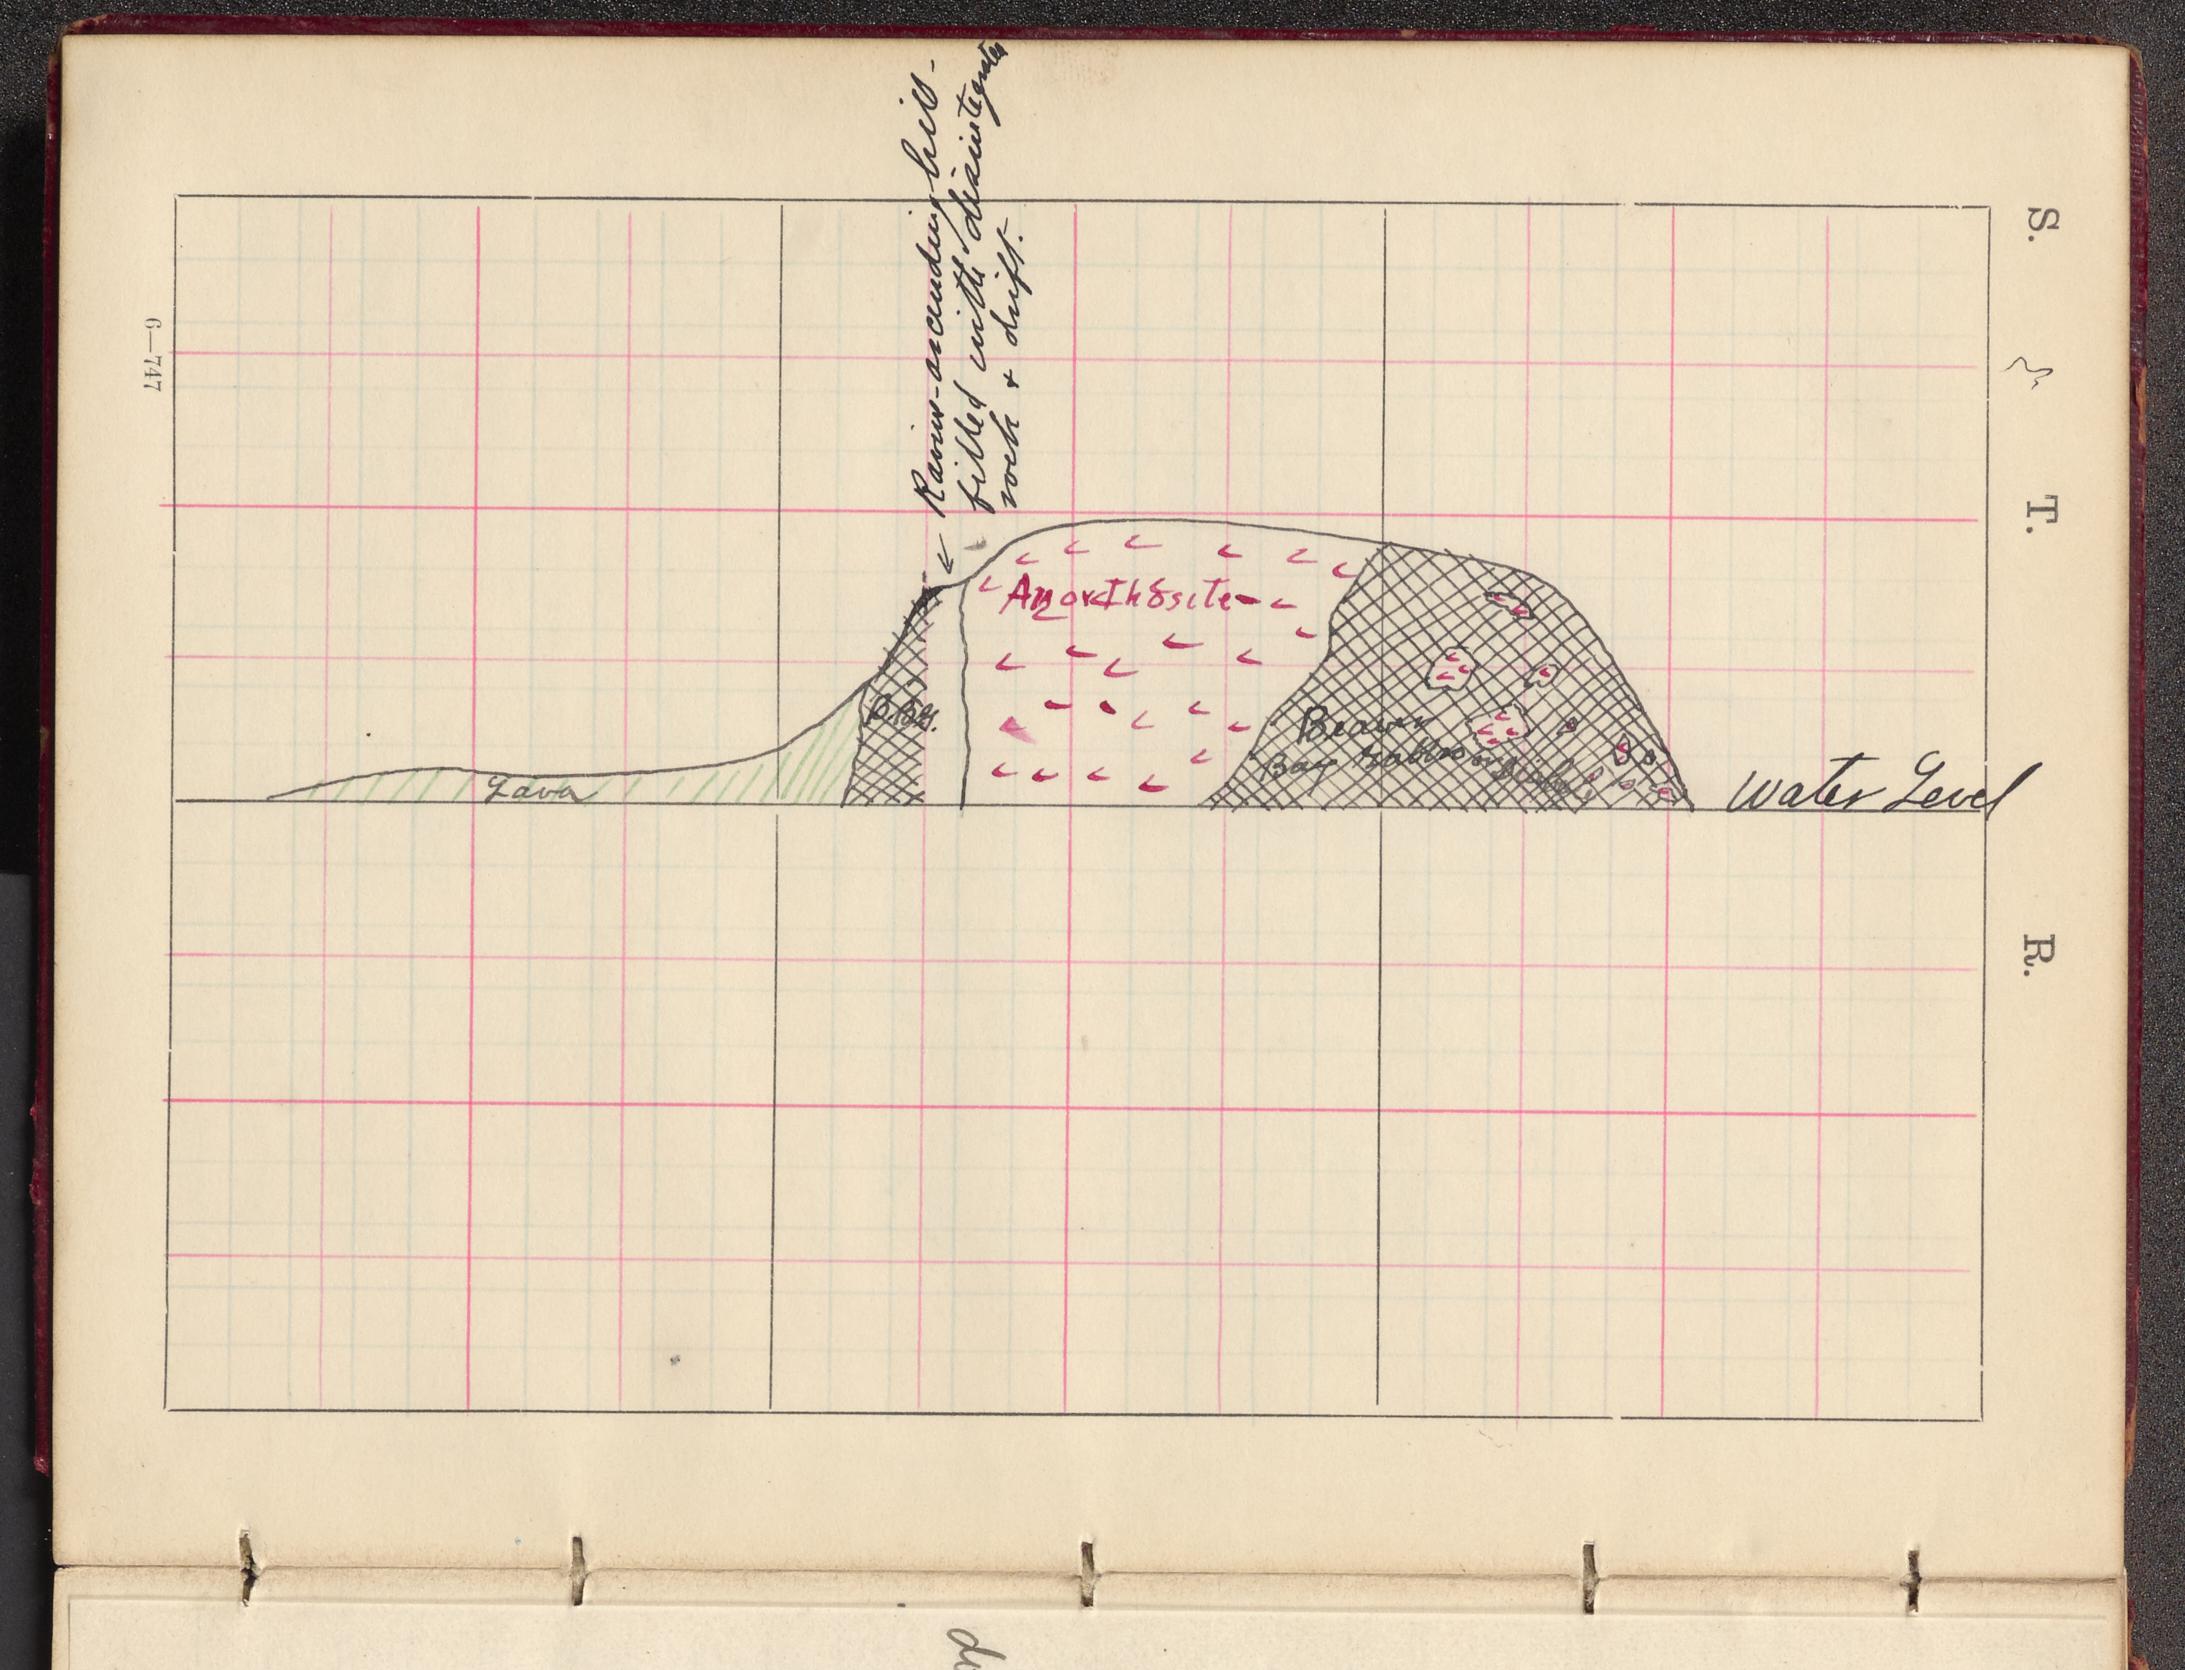 Ravine-ascending hill-
filled with disintegrated
rock & drift.
Anorthosite
B.B.G.
Beaver
Bay Gabbro or Diabase
Lava
Water Level
S.
T.
R.
6—747